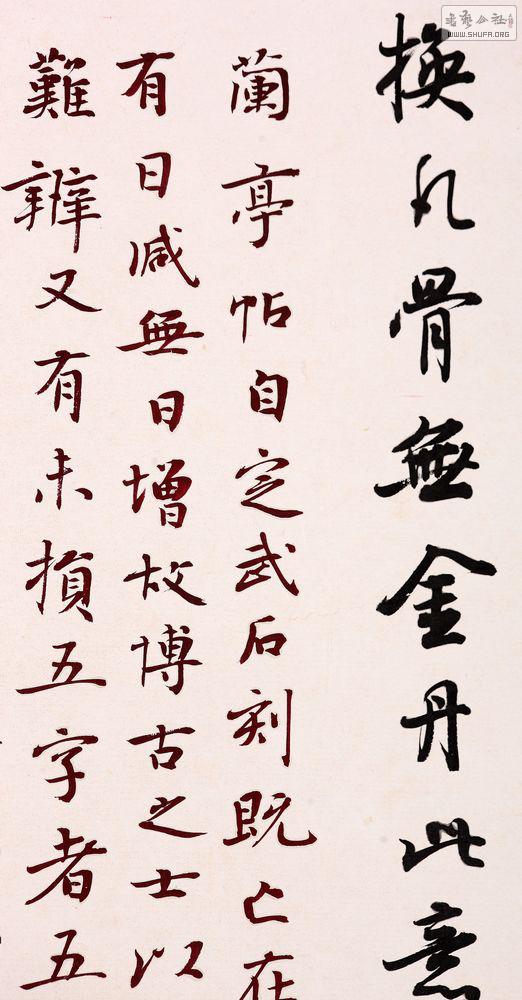 換凡骨無金丹此意
蘭亭帖自定武石刻既亡在
有日減無日增故博古之士以
難辨又有未損五字者五
書藝公社
WWW.SHUFA.ORG